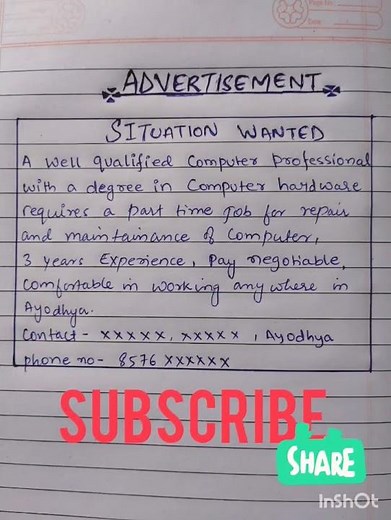 ADVERTISEMENT
SITUATION WANTED
A well qualified Computer professional
with a degree in Computer hardware
requires a part time Job for repair
and maintainance of Computer,
3 years Experience, Pay negotiable,
Comfortable in working any where in
Ayodhya.
Contact - xxxxx, xxxxx , Ayodhya
phone no- 8576 xxxxxx
SUBSCRIBE
SHARE
InShOt